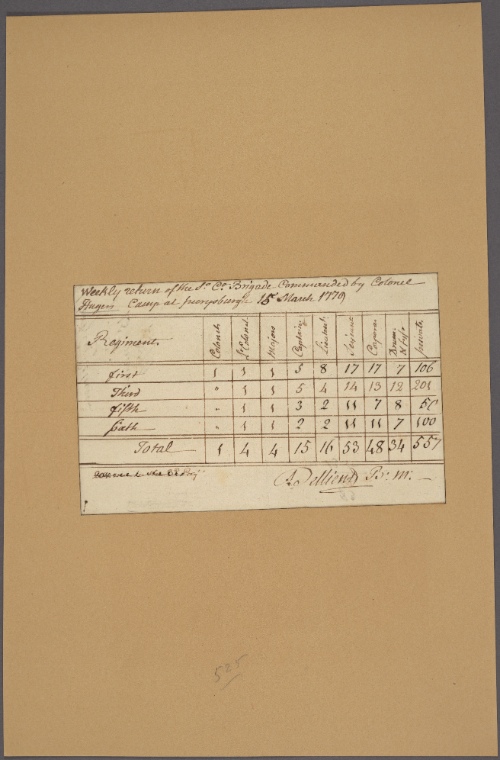 Weekly return of the So Ca Brigade Commanded by Colonel
Camp at purysburg 15 March 1779
Regiment. Colonels Lt Colonel. Majors Captains Lieutent. Serjeants Corporals Drums & fifes privates
first 1 1 1 8 17 17 7 106
Third " 1 1 5 4 14 13 12 201
fifth " 1 1 3 2 11 7 8
Sixth " 1 1 2 2 11 11 7 100
Total 1 4 4 15 16 53 48 34 557
B: m:
525